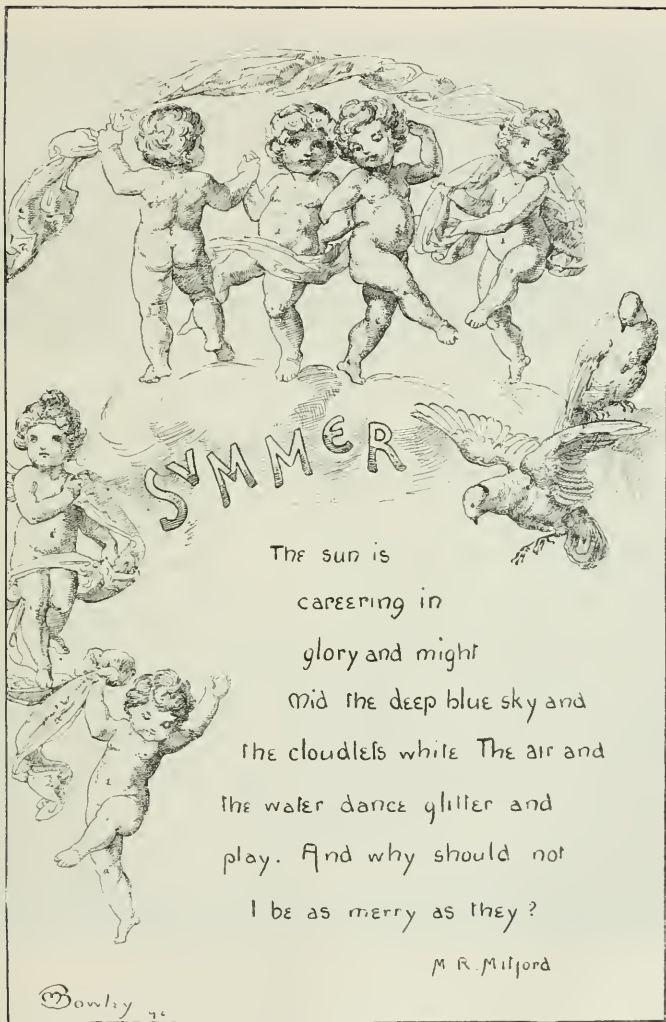 SVMMER
The sun is
careering in
glory and might
Mid the deep blue sky and
the cloudlets white The air and
the water dance glitter and
play. And why should not
I be as merry as they?
M R. Mitford
MBowley